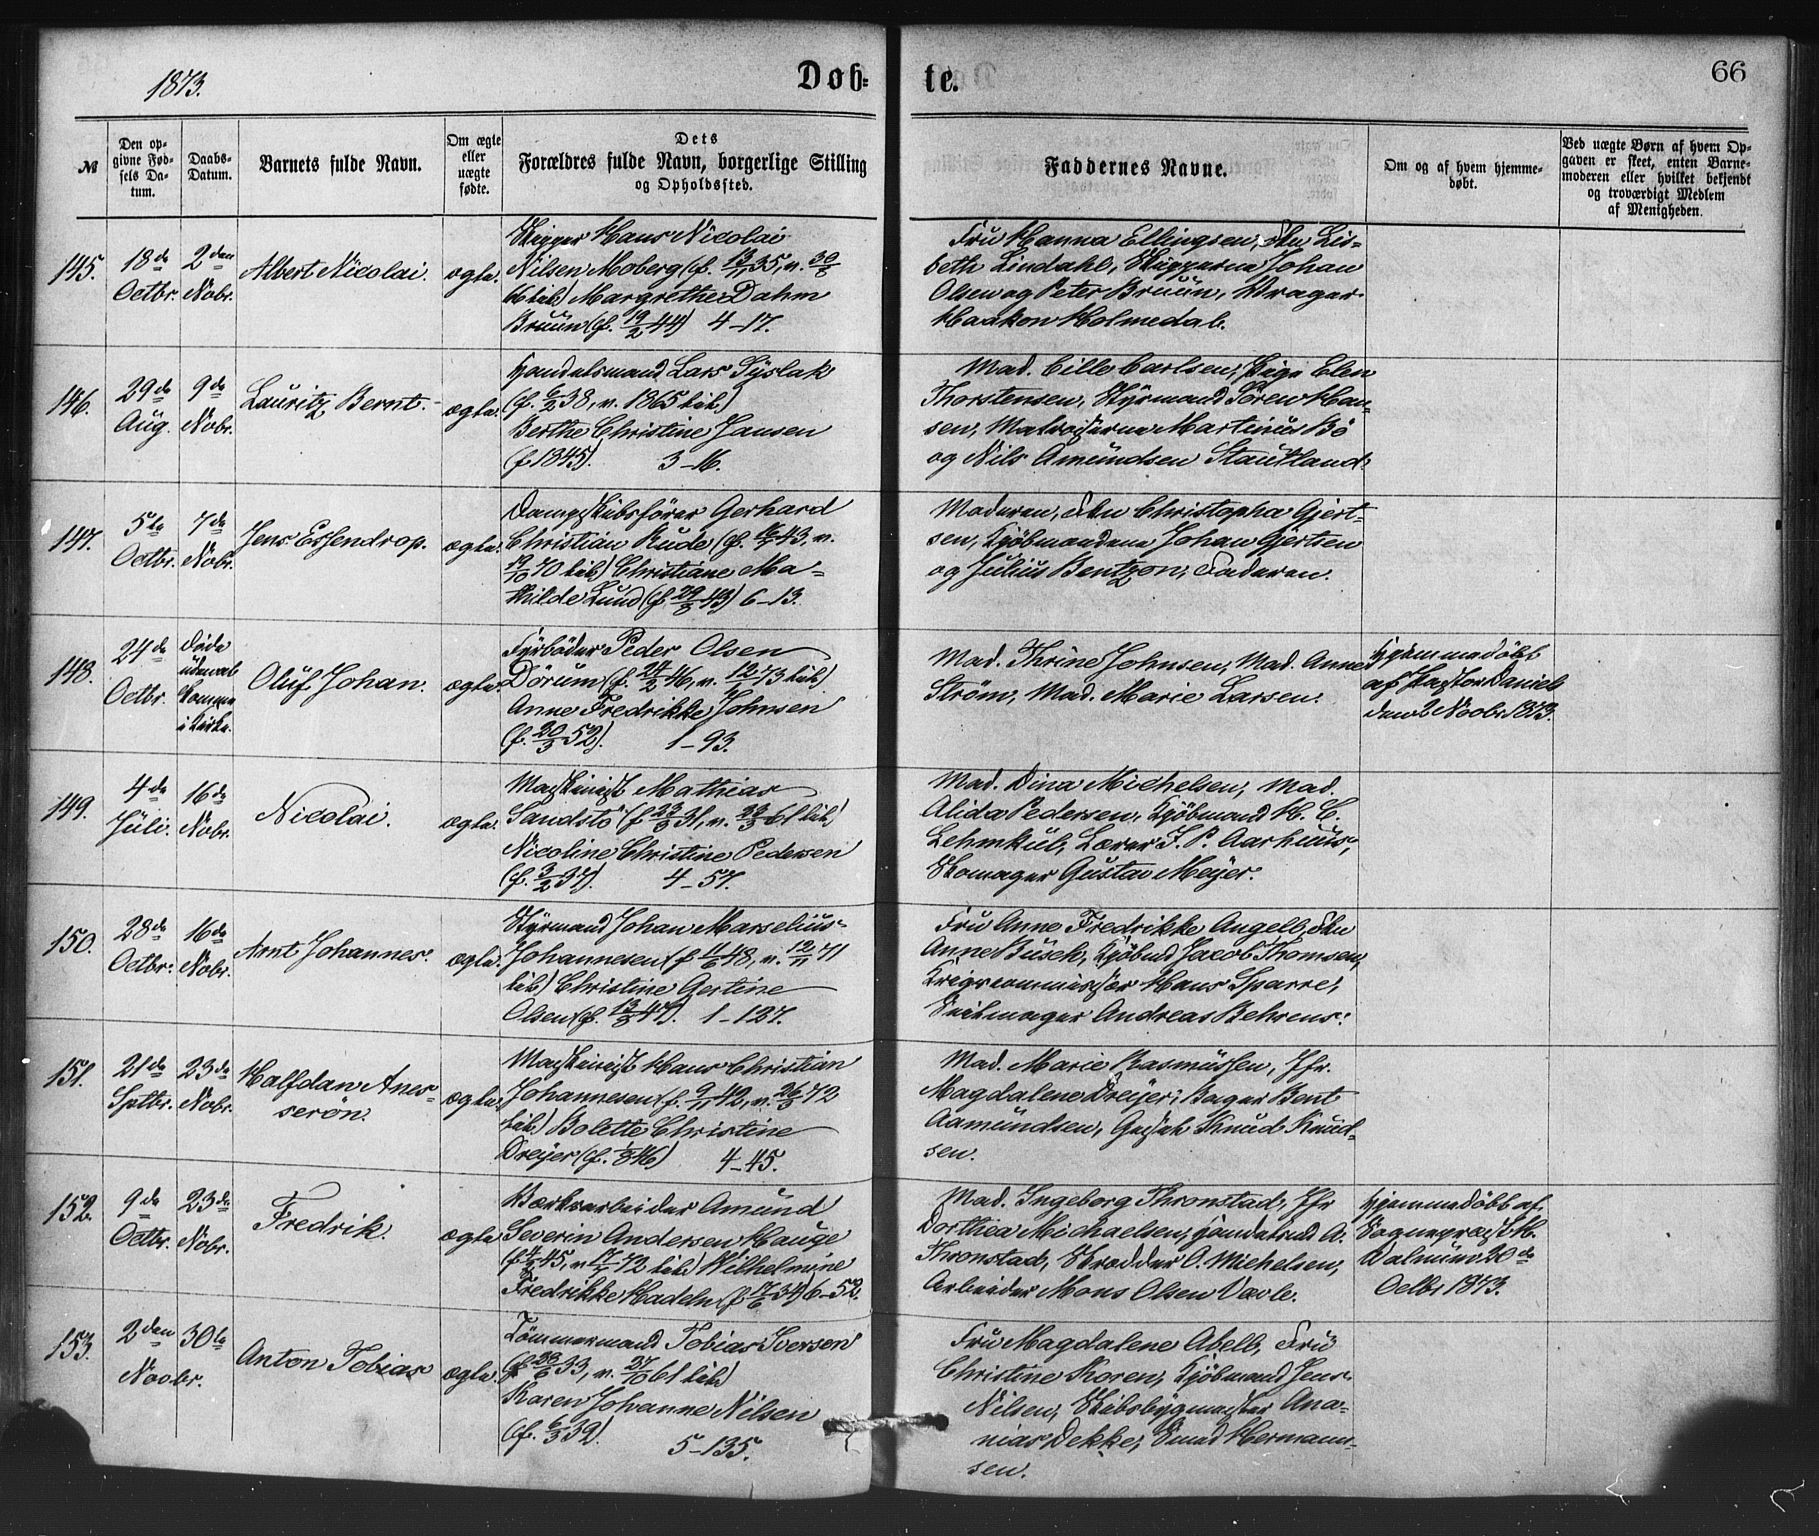 1873.
Døb-
te.
66
№
Den op-
givne Fød-
sels Da-
tum.
Daabs-
Datum.
Barnets fulde Navn.
Om ægte
eller
uægte
fødte.
Dets
Forældres fulde Navn, borgerlige Stilling
og Opholdssted.
Faddernes Navne.
Om og af hvem hjemme-
døbt.
Ved uægte Børn af hvem Op-
gaven er skeet, enten Barne-
moderen eller hvilket bekjendt
og troværdigt Medlem
af Menigheden.
145.
18de
Octbr.
2den
Nobr.
Albert Nicolai.
ægte.
Skipper Hans Nicolai
Nilsen Moberg (f. 13/11 35, v. 30/8
66 lib.) Margrethe Dahm
Bruun (f. 19/2 44) 4-17.
Fru Hanna Ellingsen, Lis-
beth Lindahl, Skipperne Johan
Olsen og Peter Bruun, Vrager
Haakon Holmedal.
146.
29de
Aug.
9de
Nobr.
Lauritz Bernt.
ægte.
Handelsmand Lars Syslak
(f. 6/2 38, v. 1865 lib.)
Berthe Christine Jansen
(f 1845). 3-16.
Mad. Cille Carlsen, Pige Elen
Thorstensen, Styrmand Sören Han-
sen, Matroserne Martinus Bö
og Nils Amundsen Stautland.
147.
5te
Octbr.
7de
Nobr.
Jens Essendrop.
ægte.
Dampskibsförer Gerhard
Christian Rude (f. 43, v.
19/10 70 lib.) Christiane Ma-
thilde Lund (f. 29/8 43) 6-13.
Moderen, Christopha Gjert-
sen, Kjöbmændene Johan Gjertsen
og Julius Bentzon, Faderen.
148.
24de
Octbr.
Döde
udenat
komme
i Kirke.
Oluf Johan.
ægte.
Fyrböder Peder Olsen
Dörum (f. 24/2 46, v. 12/1 73 lib.)
Anne Fredrikke Johnsen
(f. 20/3 52). 1-93.
Mad. Thrine Johnsen, Mad. Anne
Ström, Mad. Marie Larsen.
Hjemmedöbt
af Pastor Daniel
den 2 Novbr 1873.
149.
4de
Juli.
16de
Nobr.
Nicolai.
ægte.
Maskinist Mathias
Sandstö (f 23/3 31, v. 23/3 61 lib.)
Nicoline Christine Pedersen
(f. 3/2 37). 4-57.
Mad. Dina Michelsen, Mad.
Alida Pedersen, Kjöbmand H. C.
Lehmkul, Lærer J. P. Aarhuus,
Skomager Gustav Meyer.
150.
28de
Octbr.
16de
Nobr.
Arnt Johannes.
ægte.
Styrmand Johan Marselius
Johannesen (f 11/6 48, v. 12/11 71
lib.) Christine Gertine
Olsen (f. 13/3 47). 1-127.
Fru Anne Fredrikke Angell,
Anne Busch, Kjöbmd Jacob Thomsen,
Krigscommissær Hans Sparre,
Seilmager Andreas Behrens.
151.
21de
Sptbr.
23de
Nobr.
Halfdan Aner-
serön.
ægte.
Maskinist Hans Christian
Johannesen (f. 9/11 42, v. 26/3 72
lib.) Bolette Christine
Dreyer (f. 1/8 46) 4-45.
Mad. Marie Rasmussen, Jfr.
Magdalene Dreyer, Bager Bent
Aamundsen, Knud Knud-
sen.
152.
9de
Octbr.
23de
Nobr.
Fredrik.
ægte
Værksarbeider Amund
Severin Andersen Hauge
(f. 45, v 72 lib.) Wilhelmine
Fredrikke Hadeln (f 17/6 34) 6-52.
Mad. Ingeborg Thronstad, Jfr
Dorthea Michaelsen, Handelsmd A.
Thronstad, Skrædder O. Michelsen,
Arbeider Mons Olsen Vavle.
Hjemmedöbt af
Sognepræst H.
Walnum 20de
Octbr 1873.
153.
2den
Novbr.
30te
Anton Tobias
ægte.
Tömmermand Tobias Iversen
(f. 23/6 33, v. 27/10 61 lib.)
Karen Johanne Nilsen
(f. 6/3 39). 5-135.
Fru Magdalene Abell, Fru
Christine Koren, Kjöbmand Jens
Nilsen, Skibsbygmester Ana-
nias Dekke, Smed Hermann-
sen.